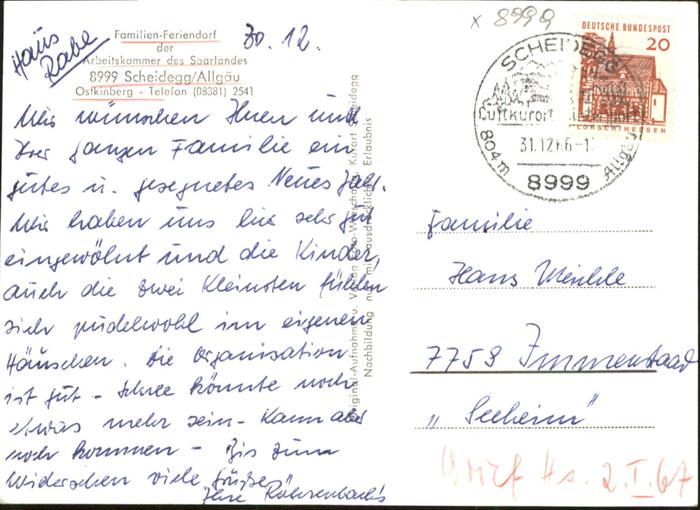 Haus
Rabe
Familien-Feriendorf
der
Arbeitskammer des Saarlandes
8999 Scheidegg/Allgäu
Ostkinberg - Telefon (08381) 2541
30.12.
x 8999
DEUTSCHE BUNDESPOST
20
LORSCH/HESSEN
SCHEIDEGG
Luftkurort
804m
Allgäu
31.12.66-1
8999
Wir wünschen Ihnen und
Ihrer ganzen Familie ein
gutes u. gesegnetes Neues Jahr.
Wir haben uns hier sehr gut
eingewöhnt und die Kinder,
auch die zwei Kleinsten fühlen
sich pudelwohl im eigenen
Häuschen. Die Organisation
ist gut - Schnee könnte noch
etwas mehr sein - Kann aber
noch kommen - Bis zum
Wiedersehen viele Grüße
Ihre Röhrenbach's
Original-Aufnahme u. Verlag Kurort Scheidegg
Nachbildung nur mit ausdrücklicher Erlaubnis
Familie
Hans
7759 Immenstaad
„Seeheim"
2.I.67